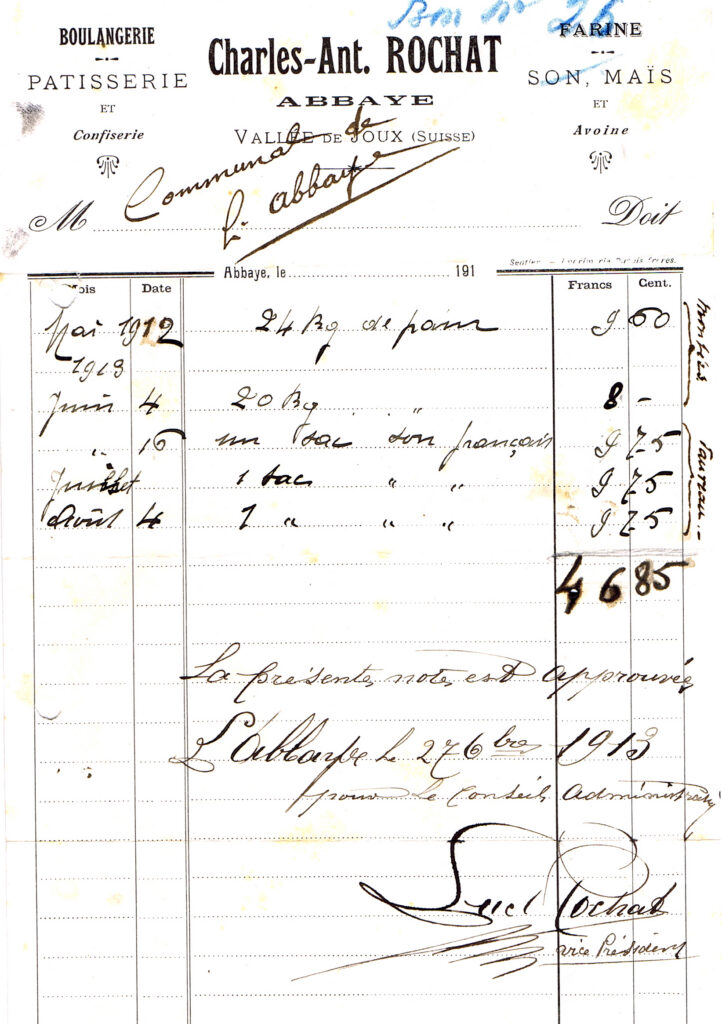 Bon nº 26
BOULANGERIE
PATISSERIE
ET
Confiserie
Charles-Ant. ROCHAT
ABBAYE
VALLÉE DE JOUX (SUISSE)
FARINE
SON, MAÏS
ET
Avoine
Communal de
L'abbaye
M
Doit
Abbaye, le 191
Mois Date Francs Cent.
Mai 1912 24 kg de pain 9 60
1913
Juin 4 20 kg " 8 -
" 16 un sac son français 9 75
Juillet 1 sac " " 9 75
Août 4 1 " " " 9 75
46 85
La présente note est approuvée
L'Abbaye le 27 6bre 1913
pour le Conseil Administratif
Luc Rochat
vice Président